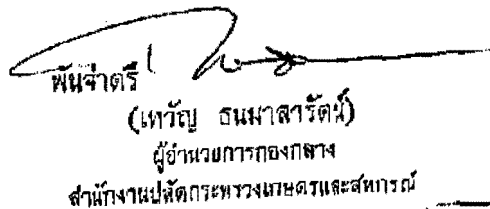 พันจ่าตรี
(เทวัญ ธนมาลารัตน์)
ผู้อำนวยการกองกลาง
สำนักงานปลัดกระทรวงเกษตรและสหกรณ์